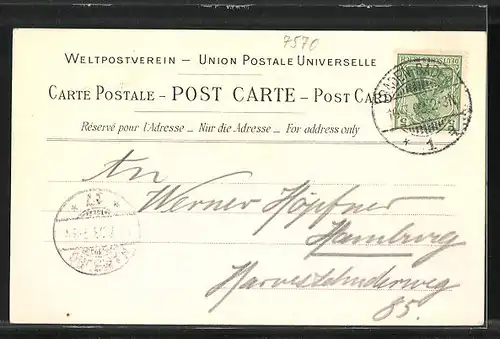 7570
WELTPOSTVEREIN – UNION POSTALE UNIVERSELLE
CARTE POSTALE – POST CARTE – POST CARD
Réservé pour l'Adresse – Nur die Adresse – For address only
An
Werner Höpfner
Hamburg
Harvestehuderweg
85.
BADEN-BADEN
* 1. a